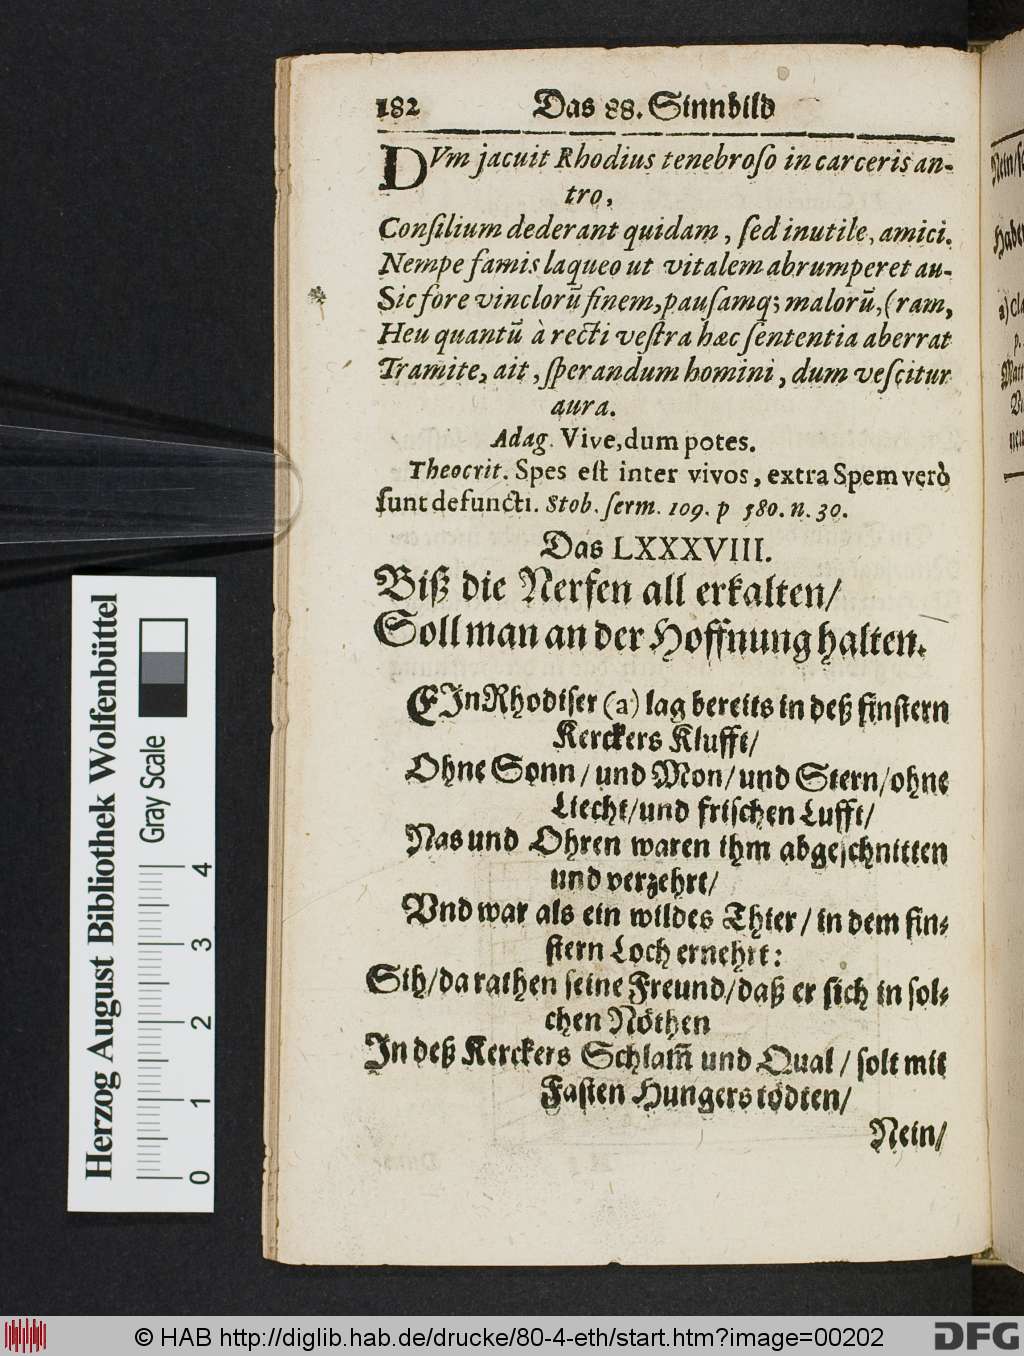 182 Das 88. Sinnbild
DVm jacuit Rhodius tenebroſo in carceris an-
tro,
Conſilium dederant quidam, ſed inutile, amici.
Nempe famis laqueo ut vitalem abrumperet au-
Sic fore vinclorũ finem, pauſamq; malorũ, (ram,
Heu quantũ à recti veſtra hæc ſententia aberrat
Tramite, ait, ſperandum homini, dum veſcitur
aura.
Adag. Vive, dum potes.
Theocrit. Spes eſt inter vivos, extra Spem verò
ſunt defuncti. Stob. ſerm. 109. p 580. n. 30.
Das LXXXVIII.
Biß die Nerfen all erkalten/
Soll man an der Hoffnung halten.
EIn Rhodiſer (a) lag bereits in deß finſtern
Kerckers Klufft/
Ohne Sonn/und Mon/und Stern/ohne
Liecht/und friſchen Lufft/
Nas und Ohren waren ihm abgeſchnitten
und verzehrt/
Vnd war als ein wildes Thier/in dem fin-
ſtern Loch ernehrt:
Sih/da rathen ſeine Freund/daß er ſich in ſol-
chen Nöthen
In deß Kerckers Schlam̃ und Qual/ſolt mit
Faſten Hungers tödten/
Nein/
Herzog August Bibliothek Wolfenbüttel
Gray Scale
0 1 2 3 4
© HAB http://diglib.hab.de/drucke/80-4-eth/start.htm?image=00202
DFG